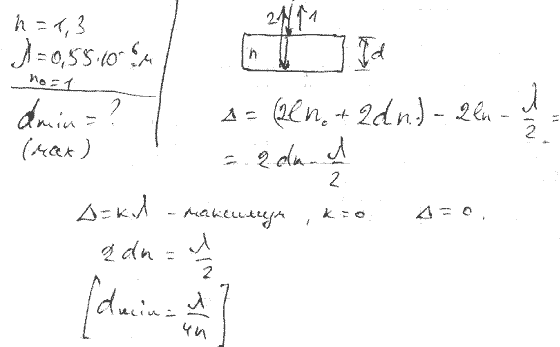 n = 1,3
λ = 0,55·10⁻⁶ м
n₀ = 1
dmin = ?
(мак)
2 1
n d
Δ = (2ln₀ + 2dn) - 2ln - λ/2 =
= 2dn - λ/2
Δ = kλ - максимум, k = 0 Δ = 0.
2dn = λ/2
[dmin = λ/4n]